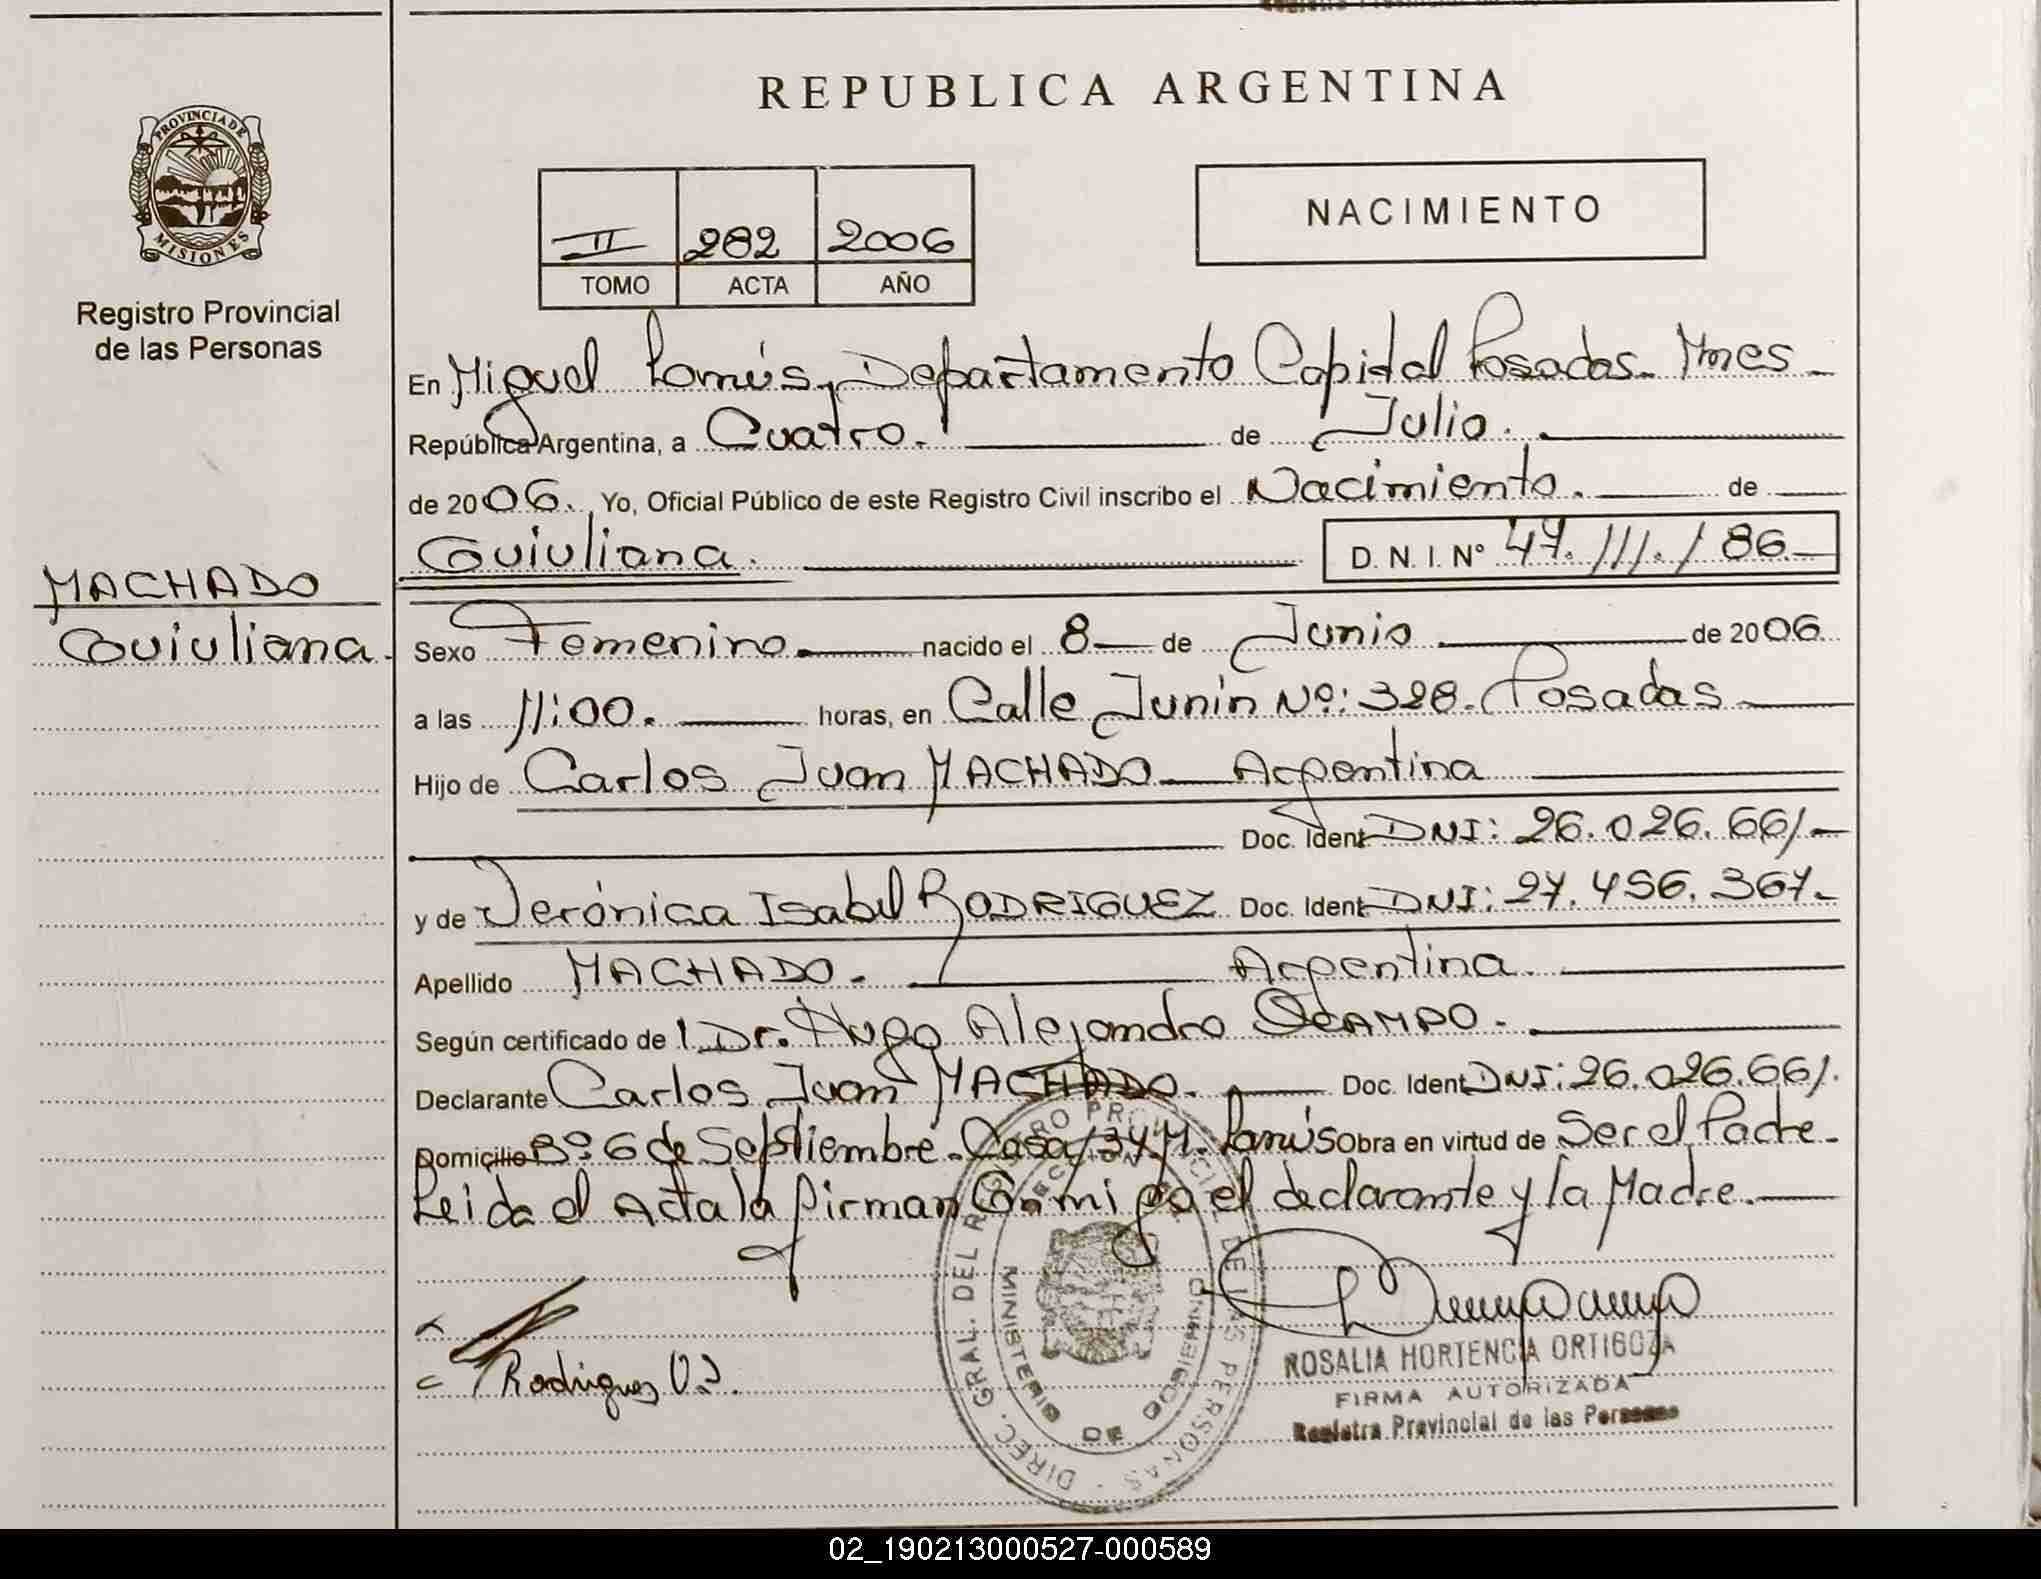 REPUBLICA ARGENTINA
PROVINCIA DE
MISIONES
Registro Provincial
de las Personas
II 282 2006
TOMO ACTA AÑO
NACIMIENTO
En Miguel Lanús, Departamento Capital Posadas. Mnes
República Argentina, a Cuatro. de Julio.
de 2006. Yo, Oficial Público de este Registro Civil inscribo el Nacimiento. de
Guiuliana. D. N. I. N° 47.111.186.
MACHADO
Guiuliana.
Sexo Femenino nacido el 8 de Junio de 2006.
a las 11:00. horas, en Calle Junin Nº: 328. Posadas
Hijo de Carlos Juan MACHADO Argentina
Doc. Ident. DNI: 26.026.661.
y de Verónica Isabel RODRIGUEZ Doc. Ident. DNI: 27.456.367.
Apellido MACHADO. Argentina.
Según certificado de l Dr. Hugo Alejandro OCAMPO.
Declarante Carlos Juan MACHADO. Doc. Ident. DNI: 26.026.661.
Domicilio Bº 6 de Septiembre. Casa 137. M. Lanús Obra en virtud de Ser el Padre.
Leida el Acta la firman Conmigo el declarante y la Madre.
Rodriguez V.I.
DIREC. GRAL. DEL REGISTRO PROVINCIAL DE LAS PERSONAS
MINISTERIO DE GOBIERNO
ROSALIA HORTENCIA ORTIGOZA
FIRMA AUTORIZADA
Registro Provincial de las Personas
02_190213000527-000589